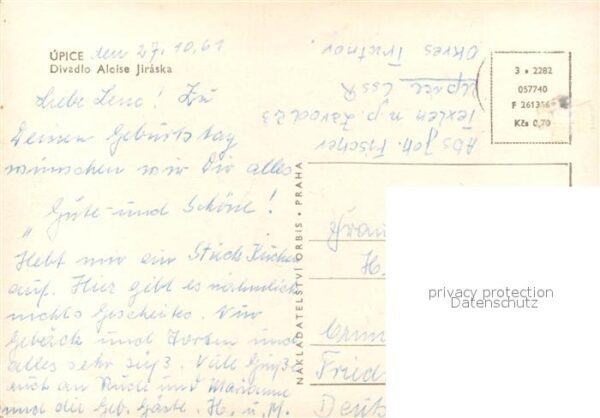 ÚPICE den 27.10.61
Divadlo Aloise Jiráska
Liebe Leno! Zu
Deinem Geburtstag
wünschen wir Dir alles
Gute und Schöne!
Hebt mir ein Stück Kuchen
auf. Hier gibt es nämlich
nichts Gescheites. Nur
Gebäck und Torten und
alles sehr süß. Viele Grüße
auch an Rudi und Marianne
und die Geb. Gäste. H. u. M.
Abs Joh. Fischer
Texlen n.p. Závod 23
Úpice ČSSR
Okres Trutnov
3 • 2282
057740
F 261356
Kčs 0,70
NAKLADATELSTVÍ ORBIS • PRAHA
Frau
H.
Crim
Fried
Deuts
privacy protection
Datenschutz